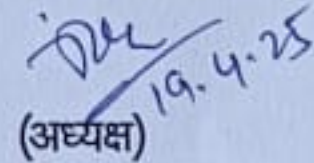 19.4.25
(अध्यक्ष)